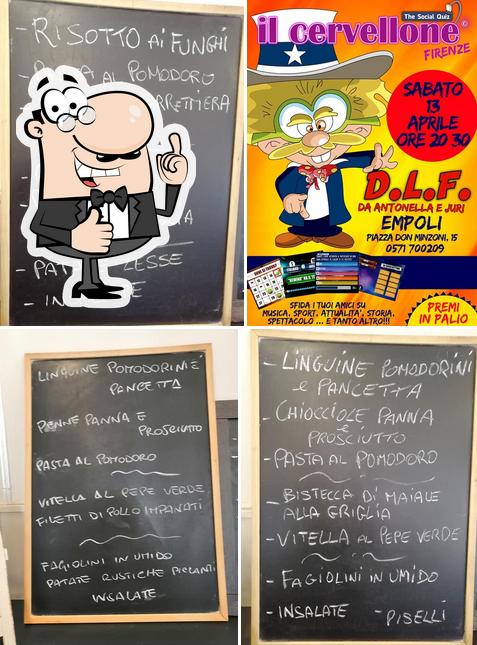 - RISOTTO Ai FUNGHI
AL POMODORO
CARRETTIERA
LESSE
The Social Quiz
il cervellone
FIRENZE
SABATO
13
APRILE
ORE 20 30
D.L.F.
DA ANTONELLA E JURI
EMPOLI
PIAZZA DON MINZONI, 15
0571 700209
SFIDA I TUOI AMICI SU
MUSICA, SPORT, ATTUALITA', STORIA,
SPETTACOLO ... E TANTO ALTRO!!!
PREMI
IN PALIO
LINGUINE POMODORINI E
PANCETTA
PENNE PANNA E
PROSCIUTTO
PASTA AL POMODORO
VITELLA AL PEPE VERDE
FILETTI DI POLLO IMPANATI
FAGIOLINI IN UMIDO
PATATE RUSTICHE PICCANTI
INSALATE
- LINGUINE POMODORINI
e PANCETTA
- CHIOCCIOLE PANNA
e
PROSCIUTTO
- PASTA AL POMODORO
- BISTECCA DI MAIALE
ALLA GRIGLIA
- VITELLA AL PEPE VERDE
- FAGIOLINI IN UMIDO
- INSALATE - PISELLI